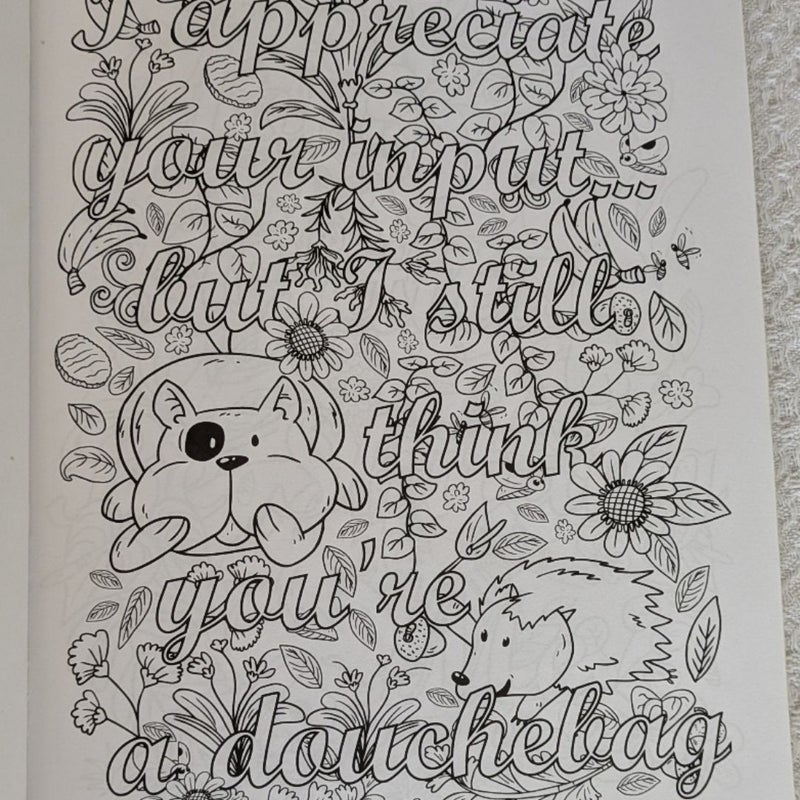 I appreciate
your input...
but I still
think
you're
a douchebag